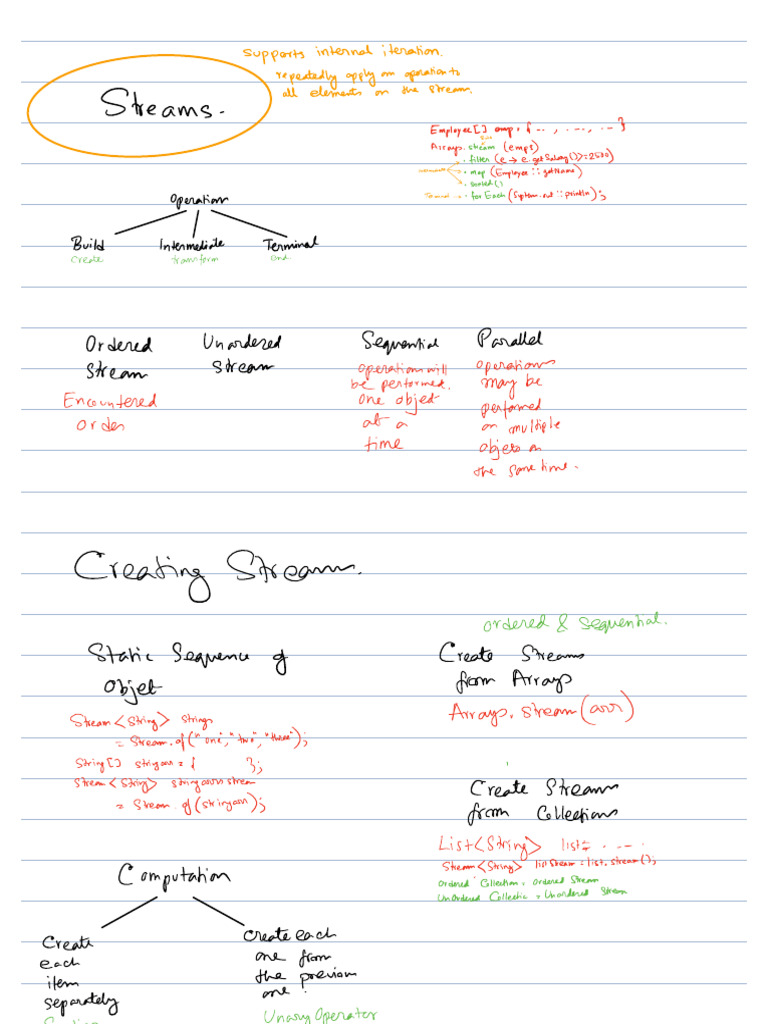 supports internal iteration.
repeatedly apply an operation to
all elements on the stream.
Streams.
Employee[] emp = { -- , --- , -- }
Arrays.stream (emps)
.filter (e → e.getSalary()>=2500)
.map (Employee :: getName)
.sorted()
Terminal → .forEach (System.out :: println);
Operation
Build Intermediate Terminal
Create transform end
Ordered
Stream
Encountered
Order
Unordered
Stream
Sequential
Operation will
be performed.
One object
at a
time
Parallel
Operations
may be
performed
on multiple
objects on
the same time.
Creating Stream.
Static Sequence of
Objet
Stream<String> strings
= Stream.of("one", "two", "three");
String[] stringarr = { };
Stream<String> stringarrstream
= Stream.of(stringarr);
ordered & sequential.
Create Streams
from Arrays
Arrays.stream(arr)
Create Streams
from Collections
List<String> list = - - - -
Stream<String> listStream = list.stream();
Ordered Collection = Ordered Stream
UnOrdered Collectio = Unordered Stream
Computation
Create
each
item
separately
Create each
one from
the previous
one.
Unary Operator